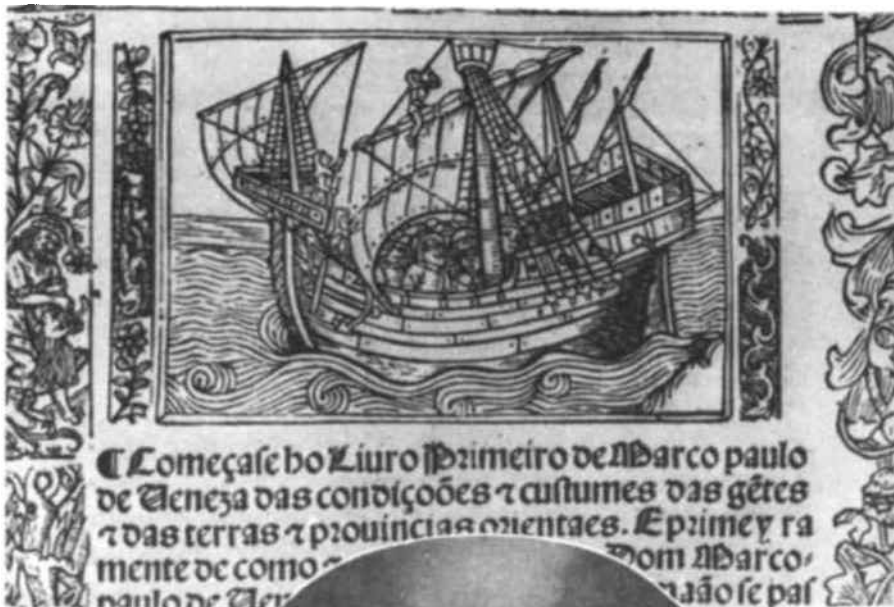 ¶ Começase ho Liuro Primeiro de Marco paulo
de Ueneza das condiçoões ⁊ custumes das gẽtes
⁊ das terras ⁊ prouincias orientaes. E primey ra
mente de como ⁊ Dom Marco
paulo de se pas